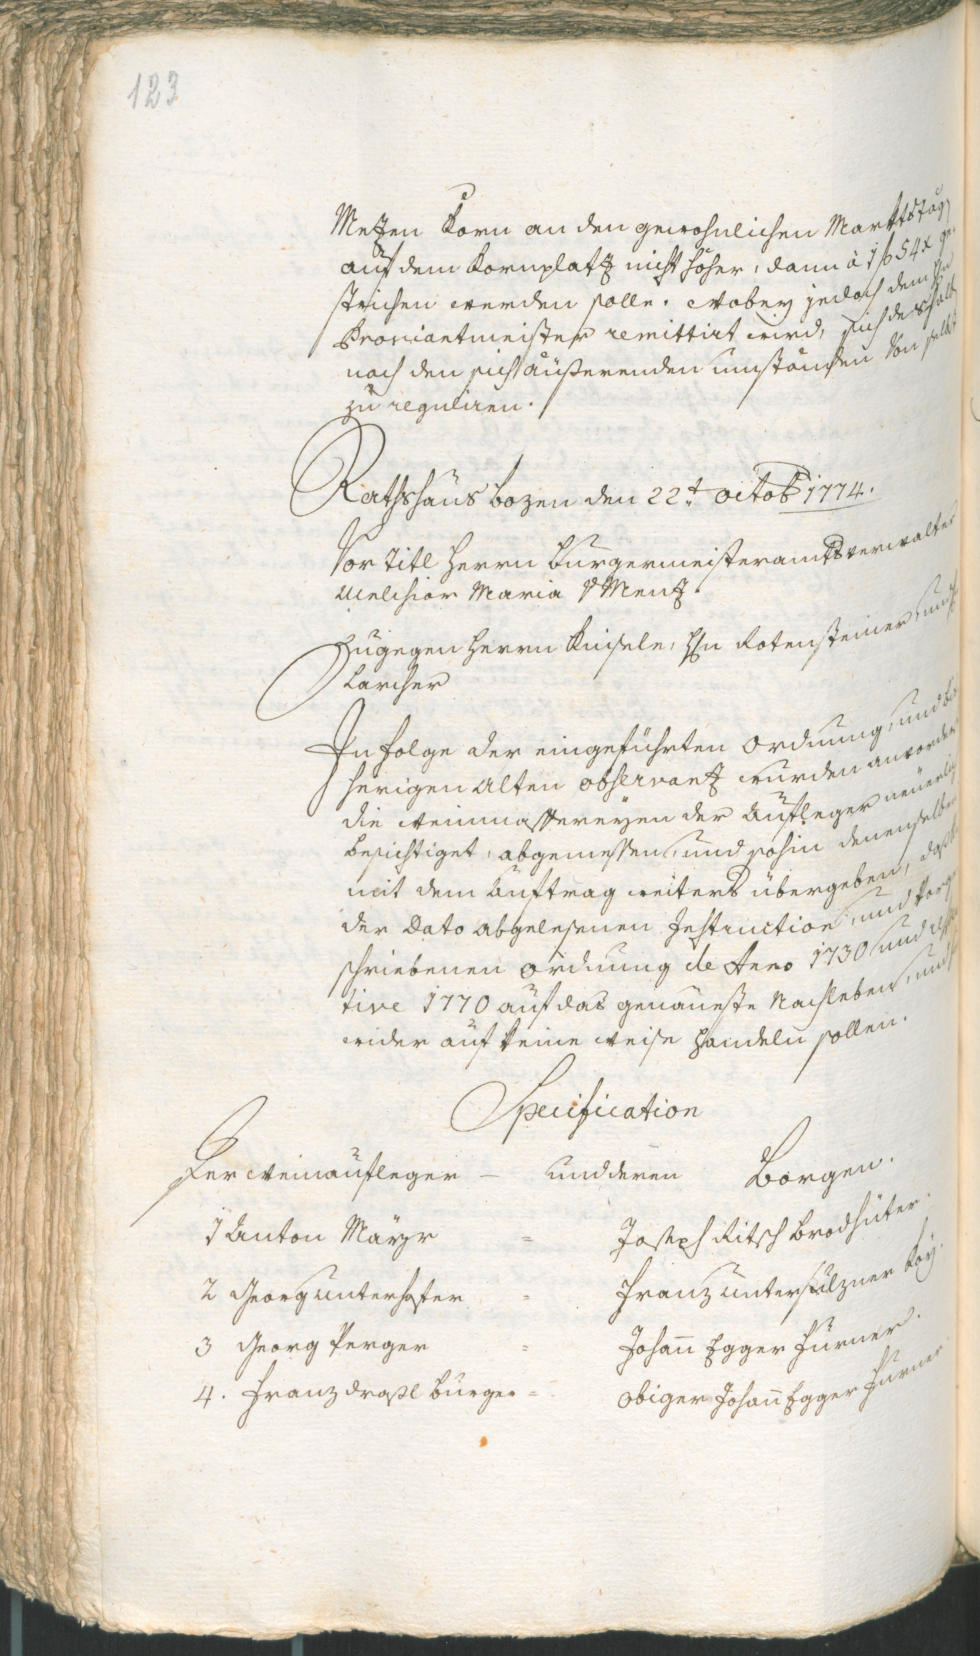 123
Metzen Korn an den gewohnlichen Markttstäg
auf dem Kornplatz nicht höher, dann à 1 f 54 x ge-
strichen werden solle. Wobey jedoch dem Hn
Proviantmeister remittirt wird, sich deshalb
nach den sich äußerenden umständen von selbst
zu reguliren.
Rathshaus bozen den 22t octob 1774.
Vor Titl herrn burgermeisteramtsverwalter
Melchior Maria v Menz.
Zugegen herrn Kinsele, Hn Rotensteiner, und
Larcher
In folge der eingeführten ordnung, und bis
herigen alten observantz wurden anvordrist
die weinmassereyen der Aufleger neuerlich
besichtiget, abgemessen, und sohin denenselben
mit dem auftrag weiters übergeben, daß
der Dato abgelesenen Instruction, und vorge
schriebenen ordnung de Anno 1730 und
tive 1770 auf das genaueste Nachleben, und
wider auf keine weise handeln sollen.
Specification
der weinaufleger – und deren Borgen.
1 Anton Mayr = Joseph Ritsch brodhüter.
2 Georg unterhofer = Franz untersulzner Koy.
3 Georg Perger = Johan̄ Egger Furner.
4. Franz draßl burger = obiger Johan̄ Egger Furner